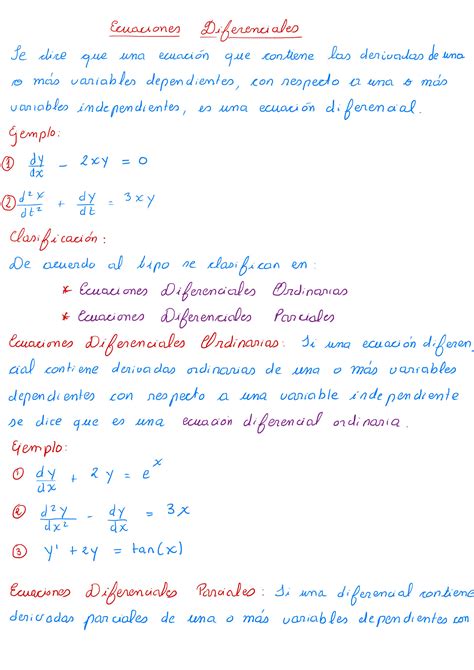 Ecuaciones Diferenciales
Se dice que una ecuación que contiene las derivadas de una
o más variables dependientes, con respecto a una o más
variables independientes, es una ecuación diferencial.
Ejemplo:
① dy/dx - 2xy = 0
② d²x/dt² + dy/dt = 3xy
Clasificación:
De acuerdo al tipo se clasifican en:
* Ecuaciones Diferenciales Ordinarias
* Ecuaciones Diferenciales Parciales
Ecuaciones Diferenciales Ordinarias: Si una ecuación diferen
cial contiene derivadas ordinarias de una o más variables
dependientes con respecto a una variable independiente
se dice que es una ecuación diferencial ordinaria.
Ejemplo:
① dy/dx + 2y = e^x
② d²y/dx² - dy/dx = 3x
③ y' + 2y = tan(x)
Ecuaciones Diferenciales Parciales: Si una diferencial contiene
derivadas parciales de una o más variables dependientes con